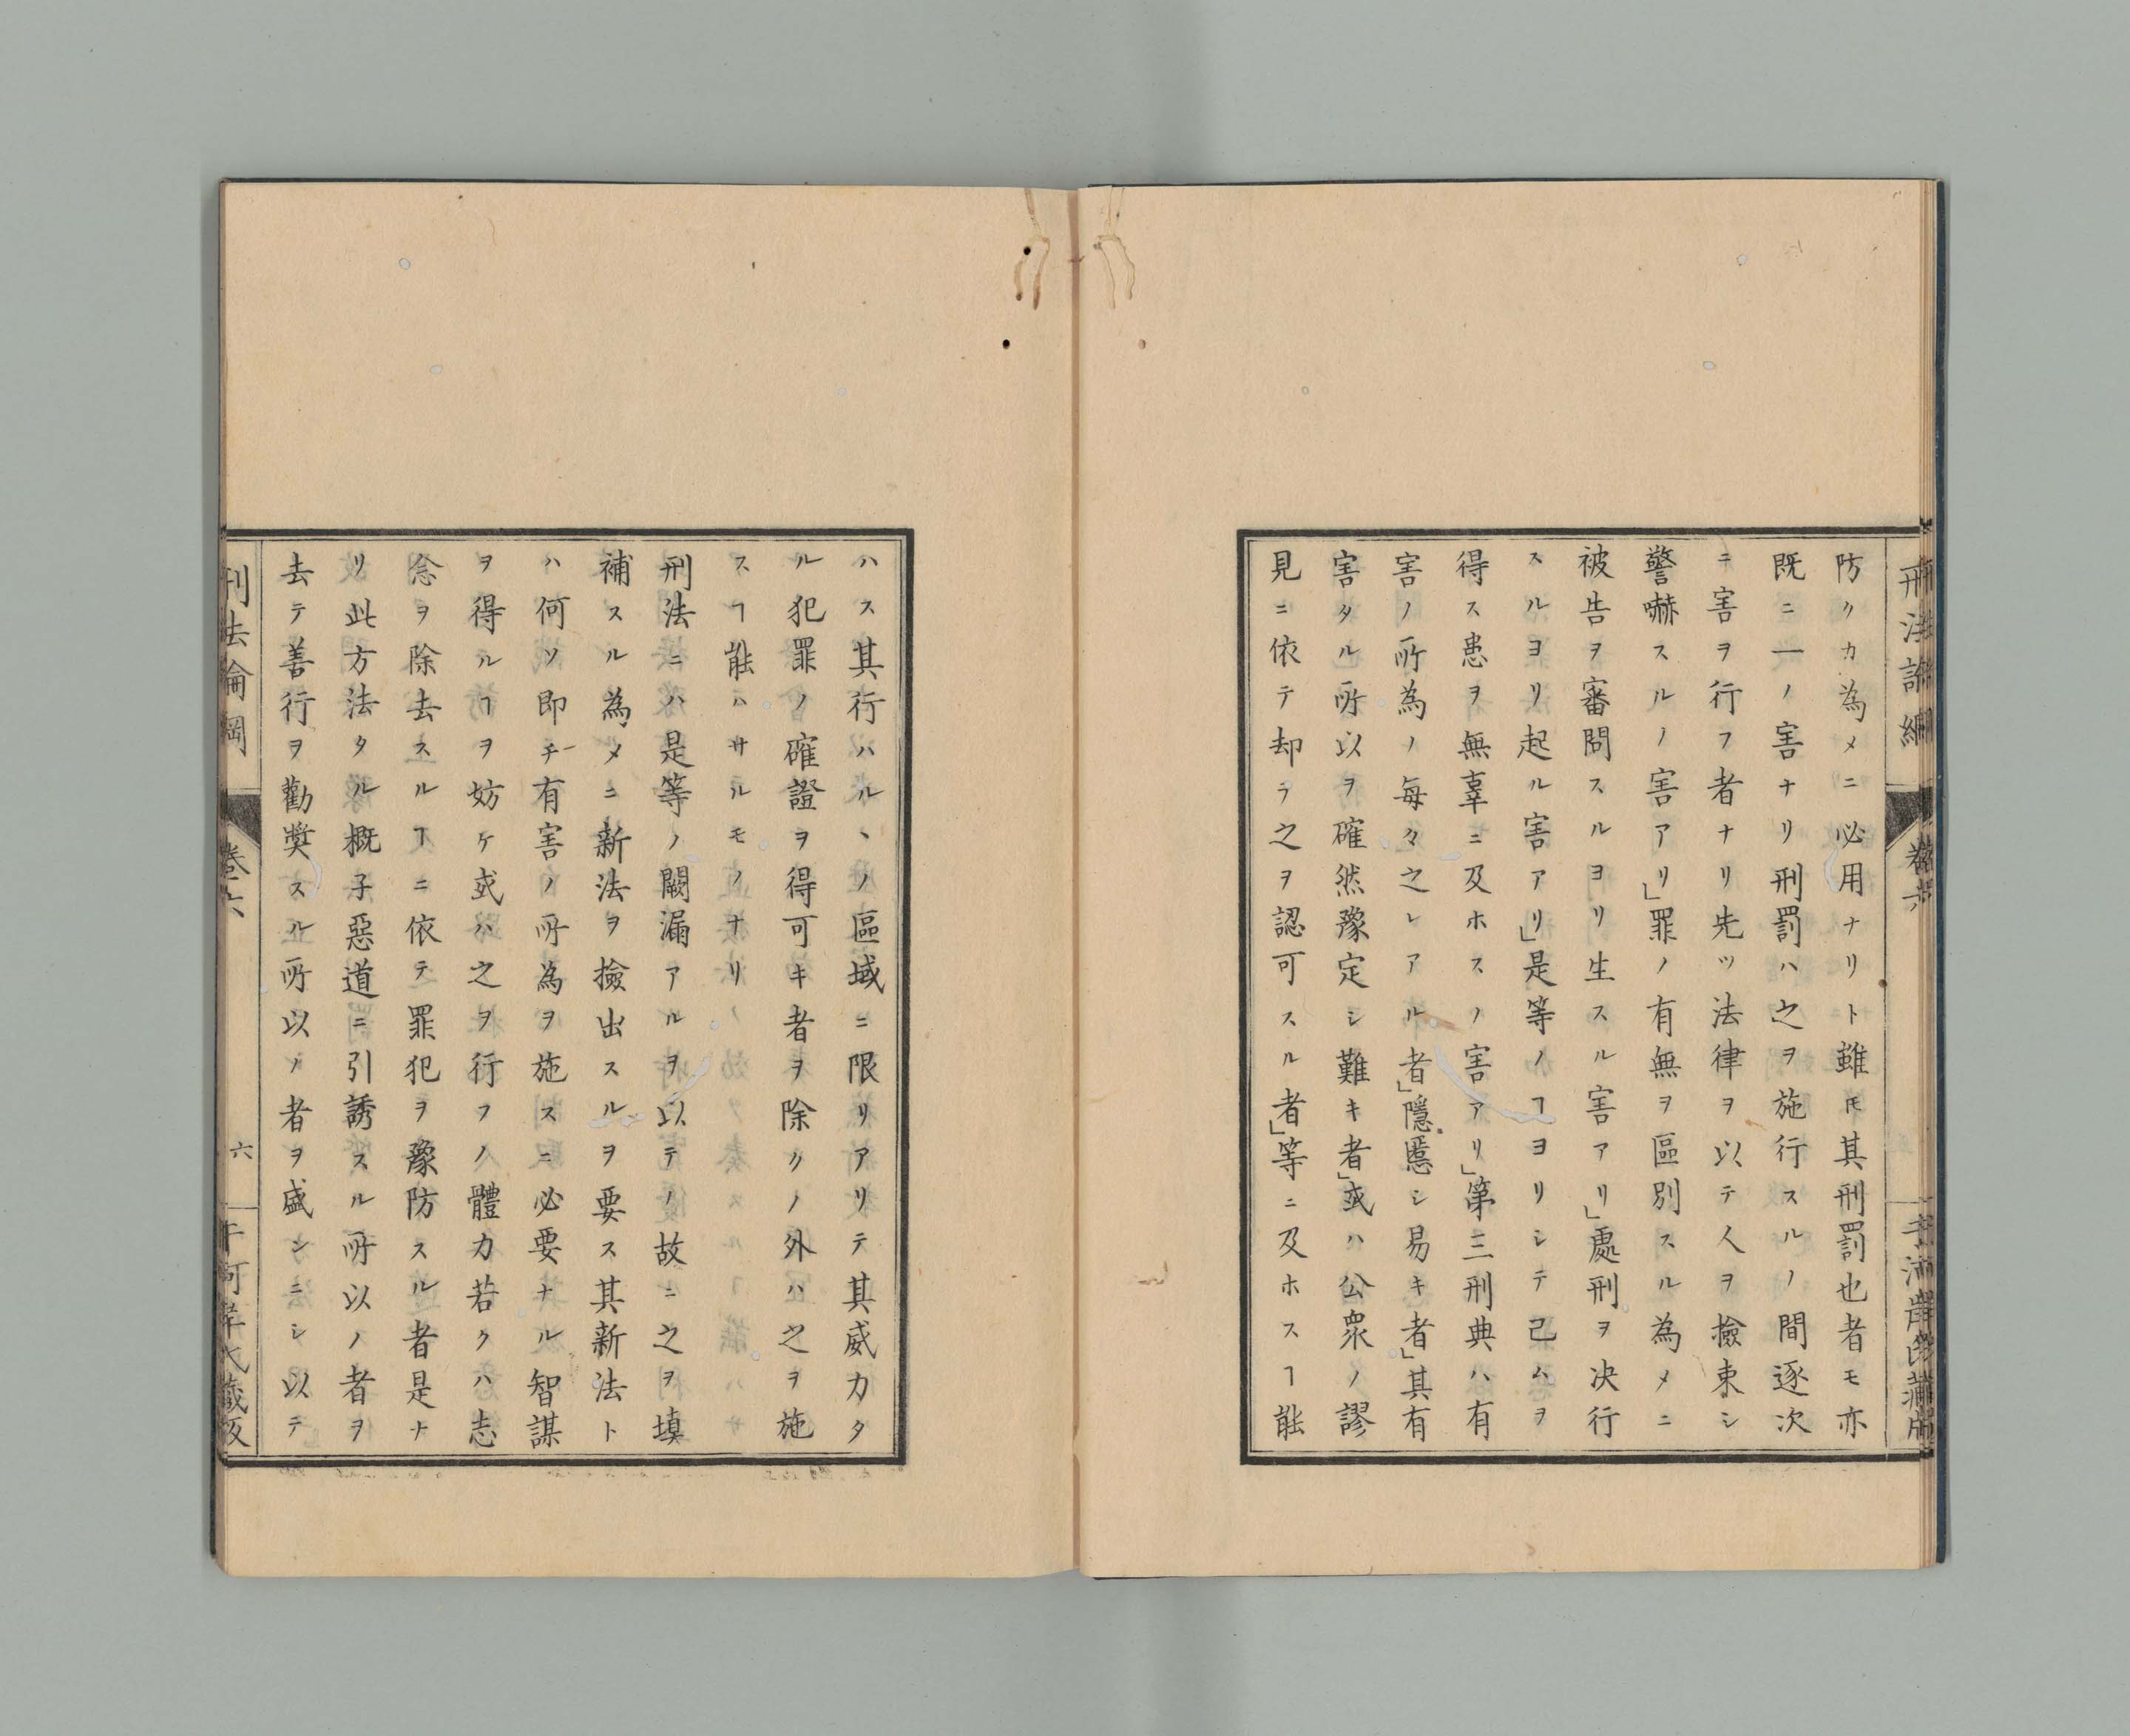 防クカ為メニ必用ナリト雖𪜈其刑罰也者モ亦
既ニ一ノ害ナリ刑罰ハ之ヲ施行スルノ間逐次
ニ害ヲ行フ者ナリ先ツ法律ヲ以テ人ヲ撿束シ
警嚇スルノ害アリ」罪ノ有無ヲ區別スル為メニ
被告ヲ審問スルヨリ生スル害アリ」處刑ヲ决行
スルヨリ起ル害アリ」是等ノヿヨリシテ已ムヲ
得ス患ヲ無辜ニ及ホスノ害アリ」第三刑典ハ有
害ノ所為ノ毎々之レアル者」隱慝シ易キ者」其有
害タル所以ヲ確然豫定シ難キ者」或ハ公衆ノ謬
見ニ依テ却ラ之ヲ認可スル者」等ニ及ホスヿ能
ハス其行ハルヽノ區域ニ限リアリテ其威力タ
ル犯罪ノ確證ヲ得可キ者ヲ除クノ外ハ之ヲ施
スヿ能ハサルモノナリ
刑法ニハ是等ノ闕漏アルヲ以テノ故ニ之ヲ填
補スル為メニ新法ヲ撿出スルヲ要ス其新法ト
ハ何ソ即チ有害ノ所為ヲ施スニ必要ナル智謀
ヲ得ルヿヲ妨ケ或ハ之ヲ行フノ體力若クハ志
念ヲ除去スルヿニ依テ罪犯ヲ豫防スル者是ナ
リ此方法タル概子惡道ニ引誘スル所以ノ者ヲ
去テ善行ヲ勸奬スル所以ノ者ヲ盛シニシ以テ
刑法論綱
卷六
六